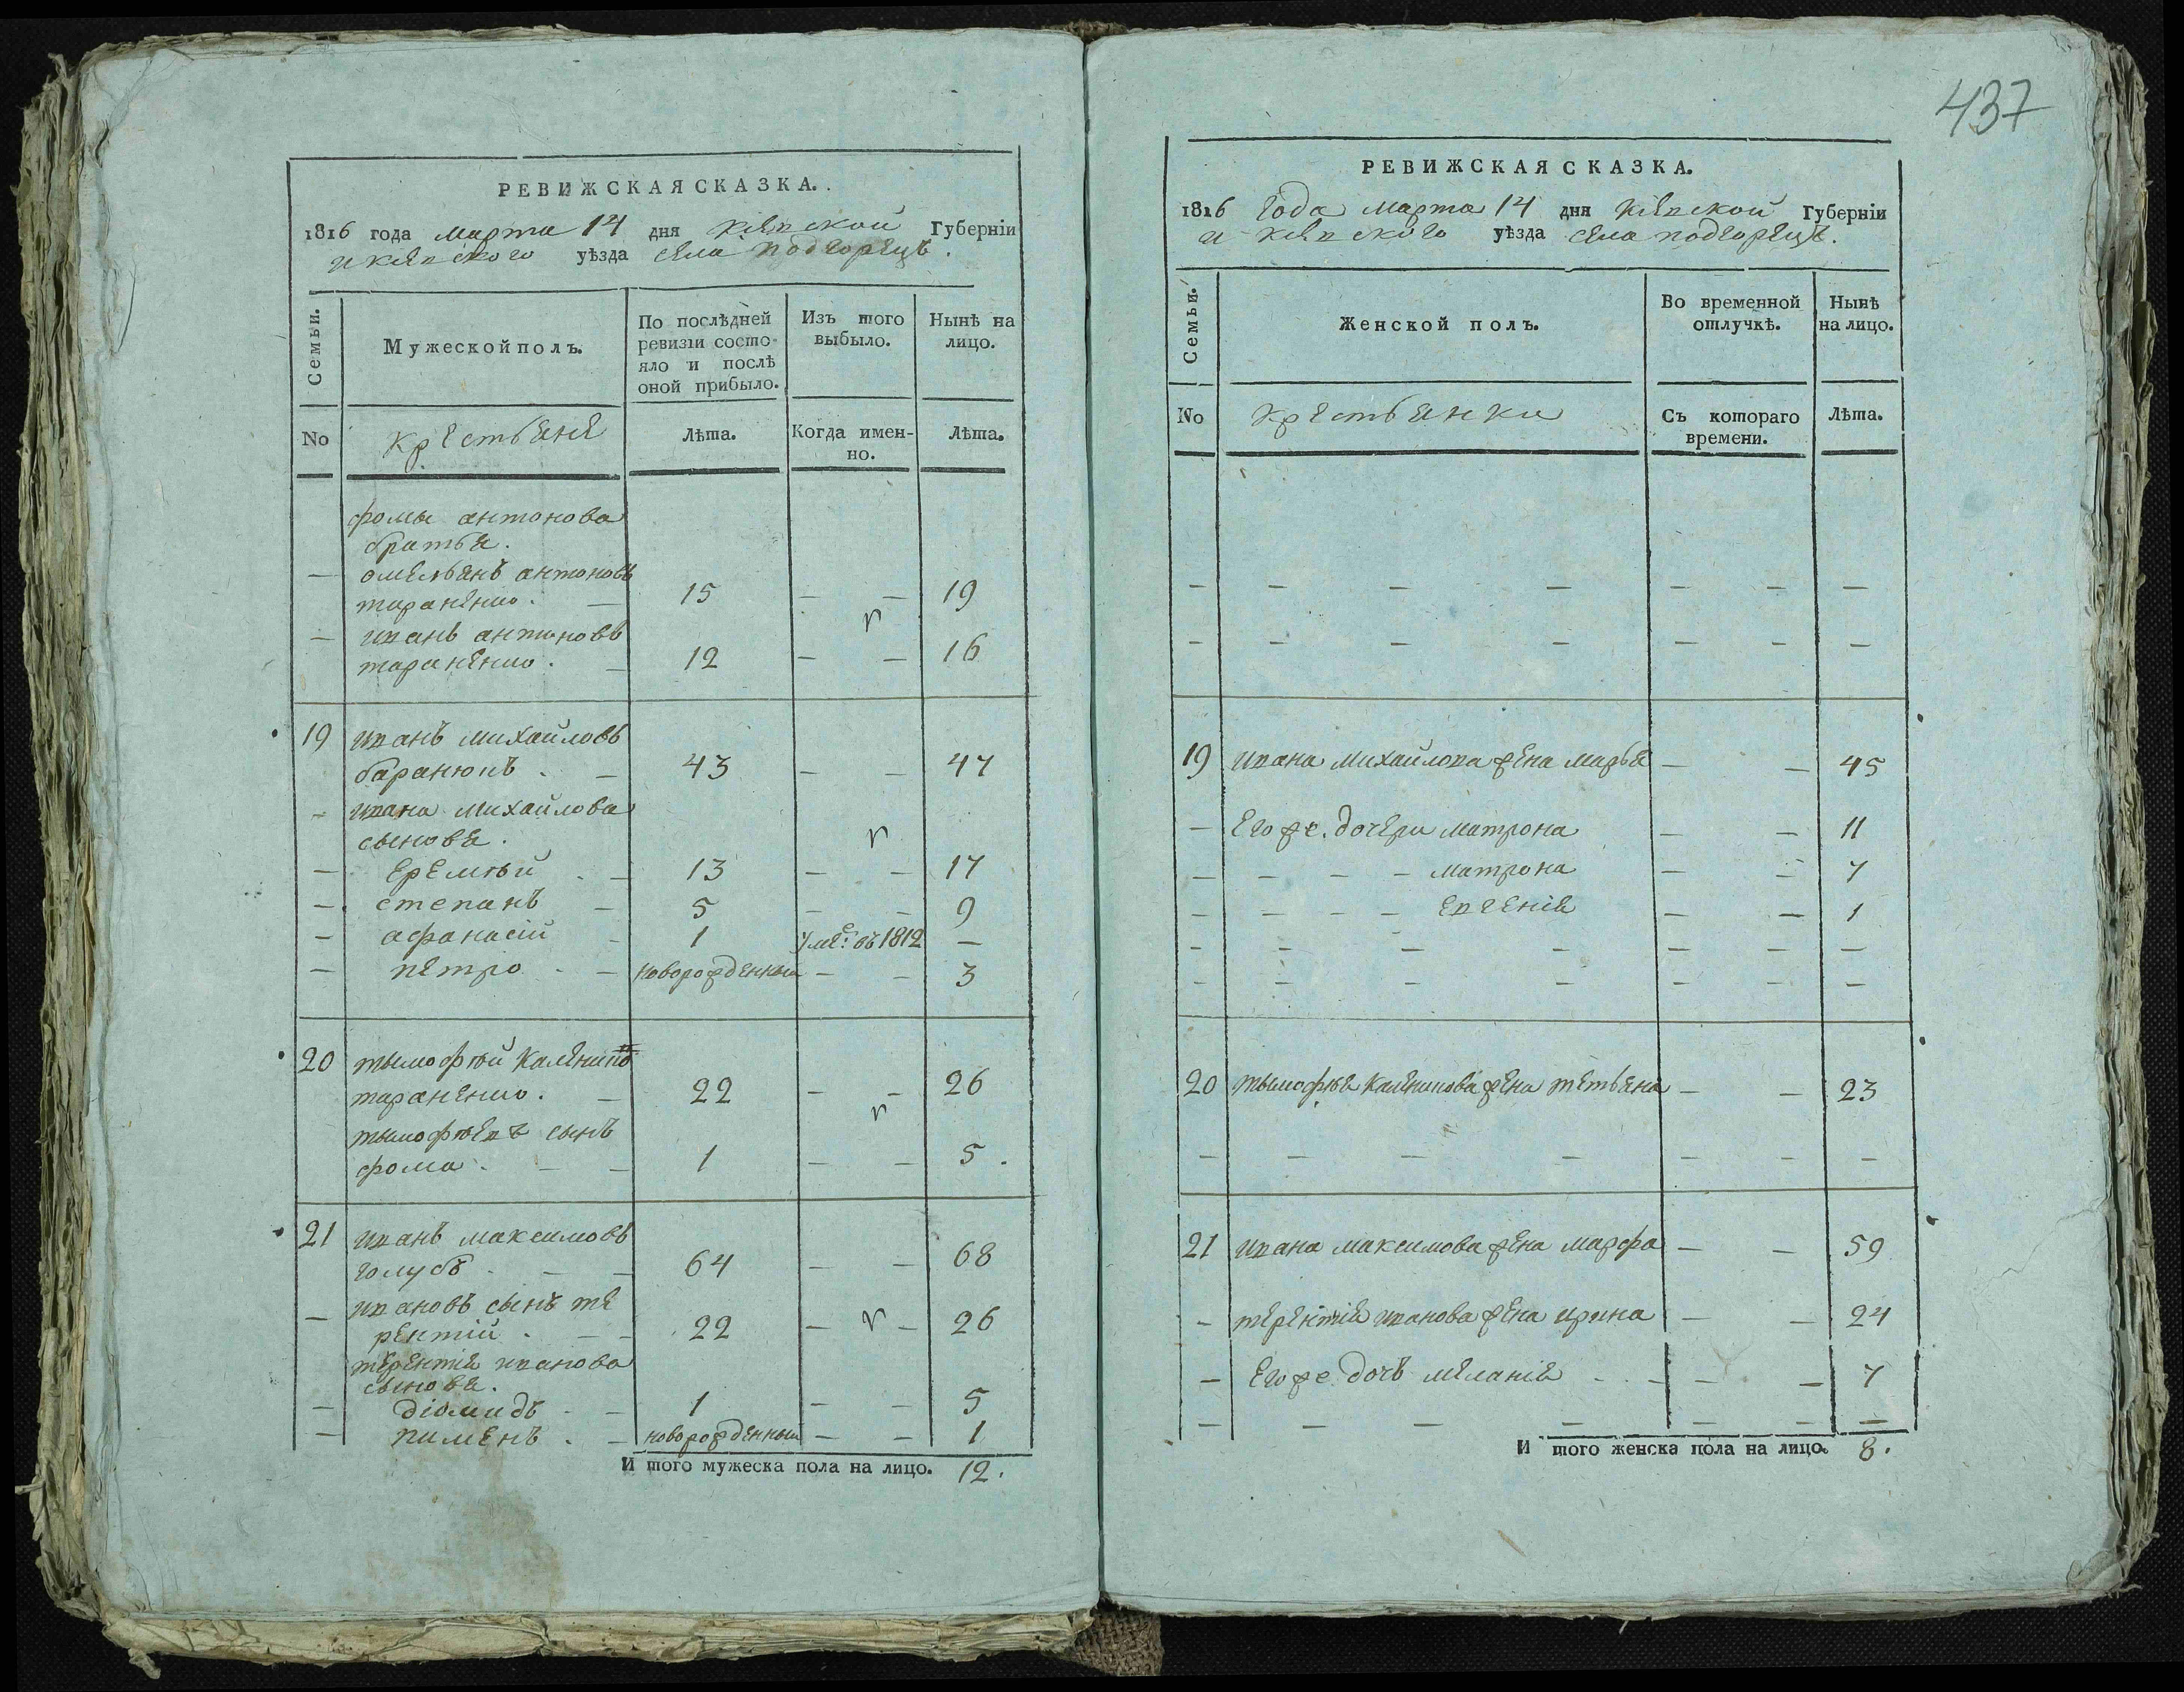 437
РЕВИЖСКАЯ СКАЗКА.
1816 года марта 14 дня киевской Губерніи
и киевского уѣзда села подгорецъ.
Семьи.
Мужеской полъ.
По послѣдней ревизіи состо-
яло и послѣ
оной прибыло.
Изъ того
выбыло.
Нынѣ на
лицо.
No
крестьяне
Лѣта.
Когда имен-
но.
Лѣта.
фомы антонова
братья.
— омельянъ антоновъ
тараненко. — 15 — — 19
— иванъ антоновъ
тараненко. — 12 — — 16
19 иванъ михайловъ
баранюкъ. — 43 — — 47
- ивана михайлова
сыновя.
— еремѣй . — 13 — — 17
— степанъ — 5 — — 9
— афанасій - 1 уме: въ 1812 —
— петро - — новорожденный — — 3
20 тымофѣй каленико
тараненко. — 22 — — 26
тымофѣевъ сынъ
фома. — — 1 — — 5.
21 иванъ максимовъ
голубъ - — — 64 — — 68
— ивановъ сынъ те
рентій . — - 22 — — 26
терентія иванова
сыновя.
— діомидъ - — 1 — — 5
— пименъ . — новорожденный — — 1
И того мужеска пола на лицо. 12.
РЕВИЖСКАЯ СКАЗКА.
1816 года марта 14 дня киевской Губерніи
и киевского уѣзда села подгорецъ.
Семьи.
Женской полъ.
Во временной
отлучкѣ.
Нынѣ
на лицо.
No
крестьянки
Съ котораго
времени.
Лѣта.
19 ивана михайлова жена марья — — 45
— его же. дочери матрона — — 11
— — — — матрона — — 7
— — — — евгенія — — 1
20 тымофѣя каленикова жена тетьяна — — 23
21 ивана максимова жена марфа — — 59
- терентія иванова жена ирина — — 24
— его же. дочь меланія - - — — — 7
И того женска пола на лицо. 8.